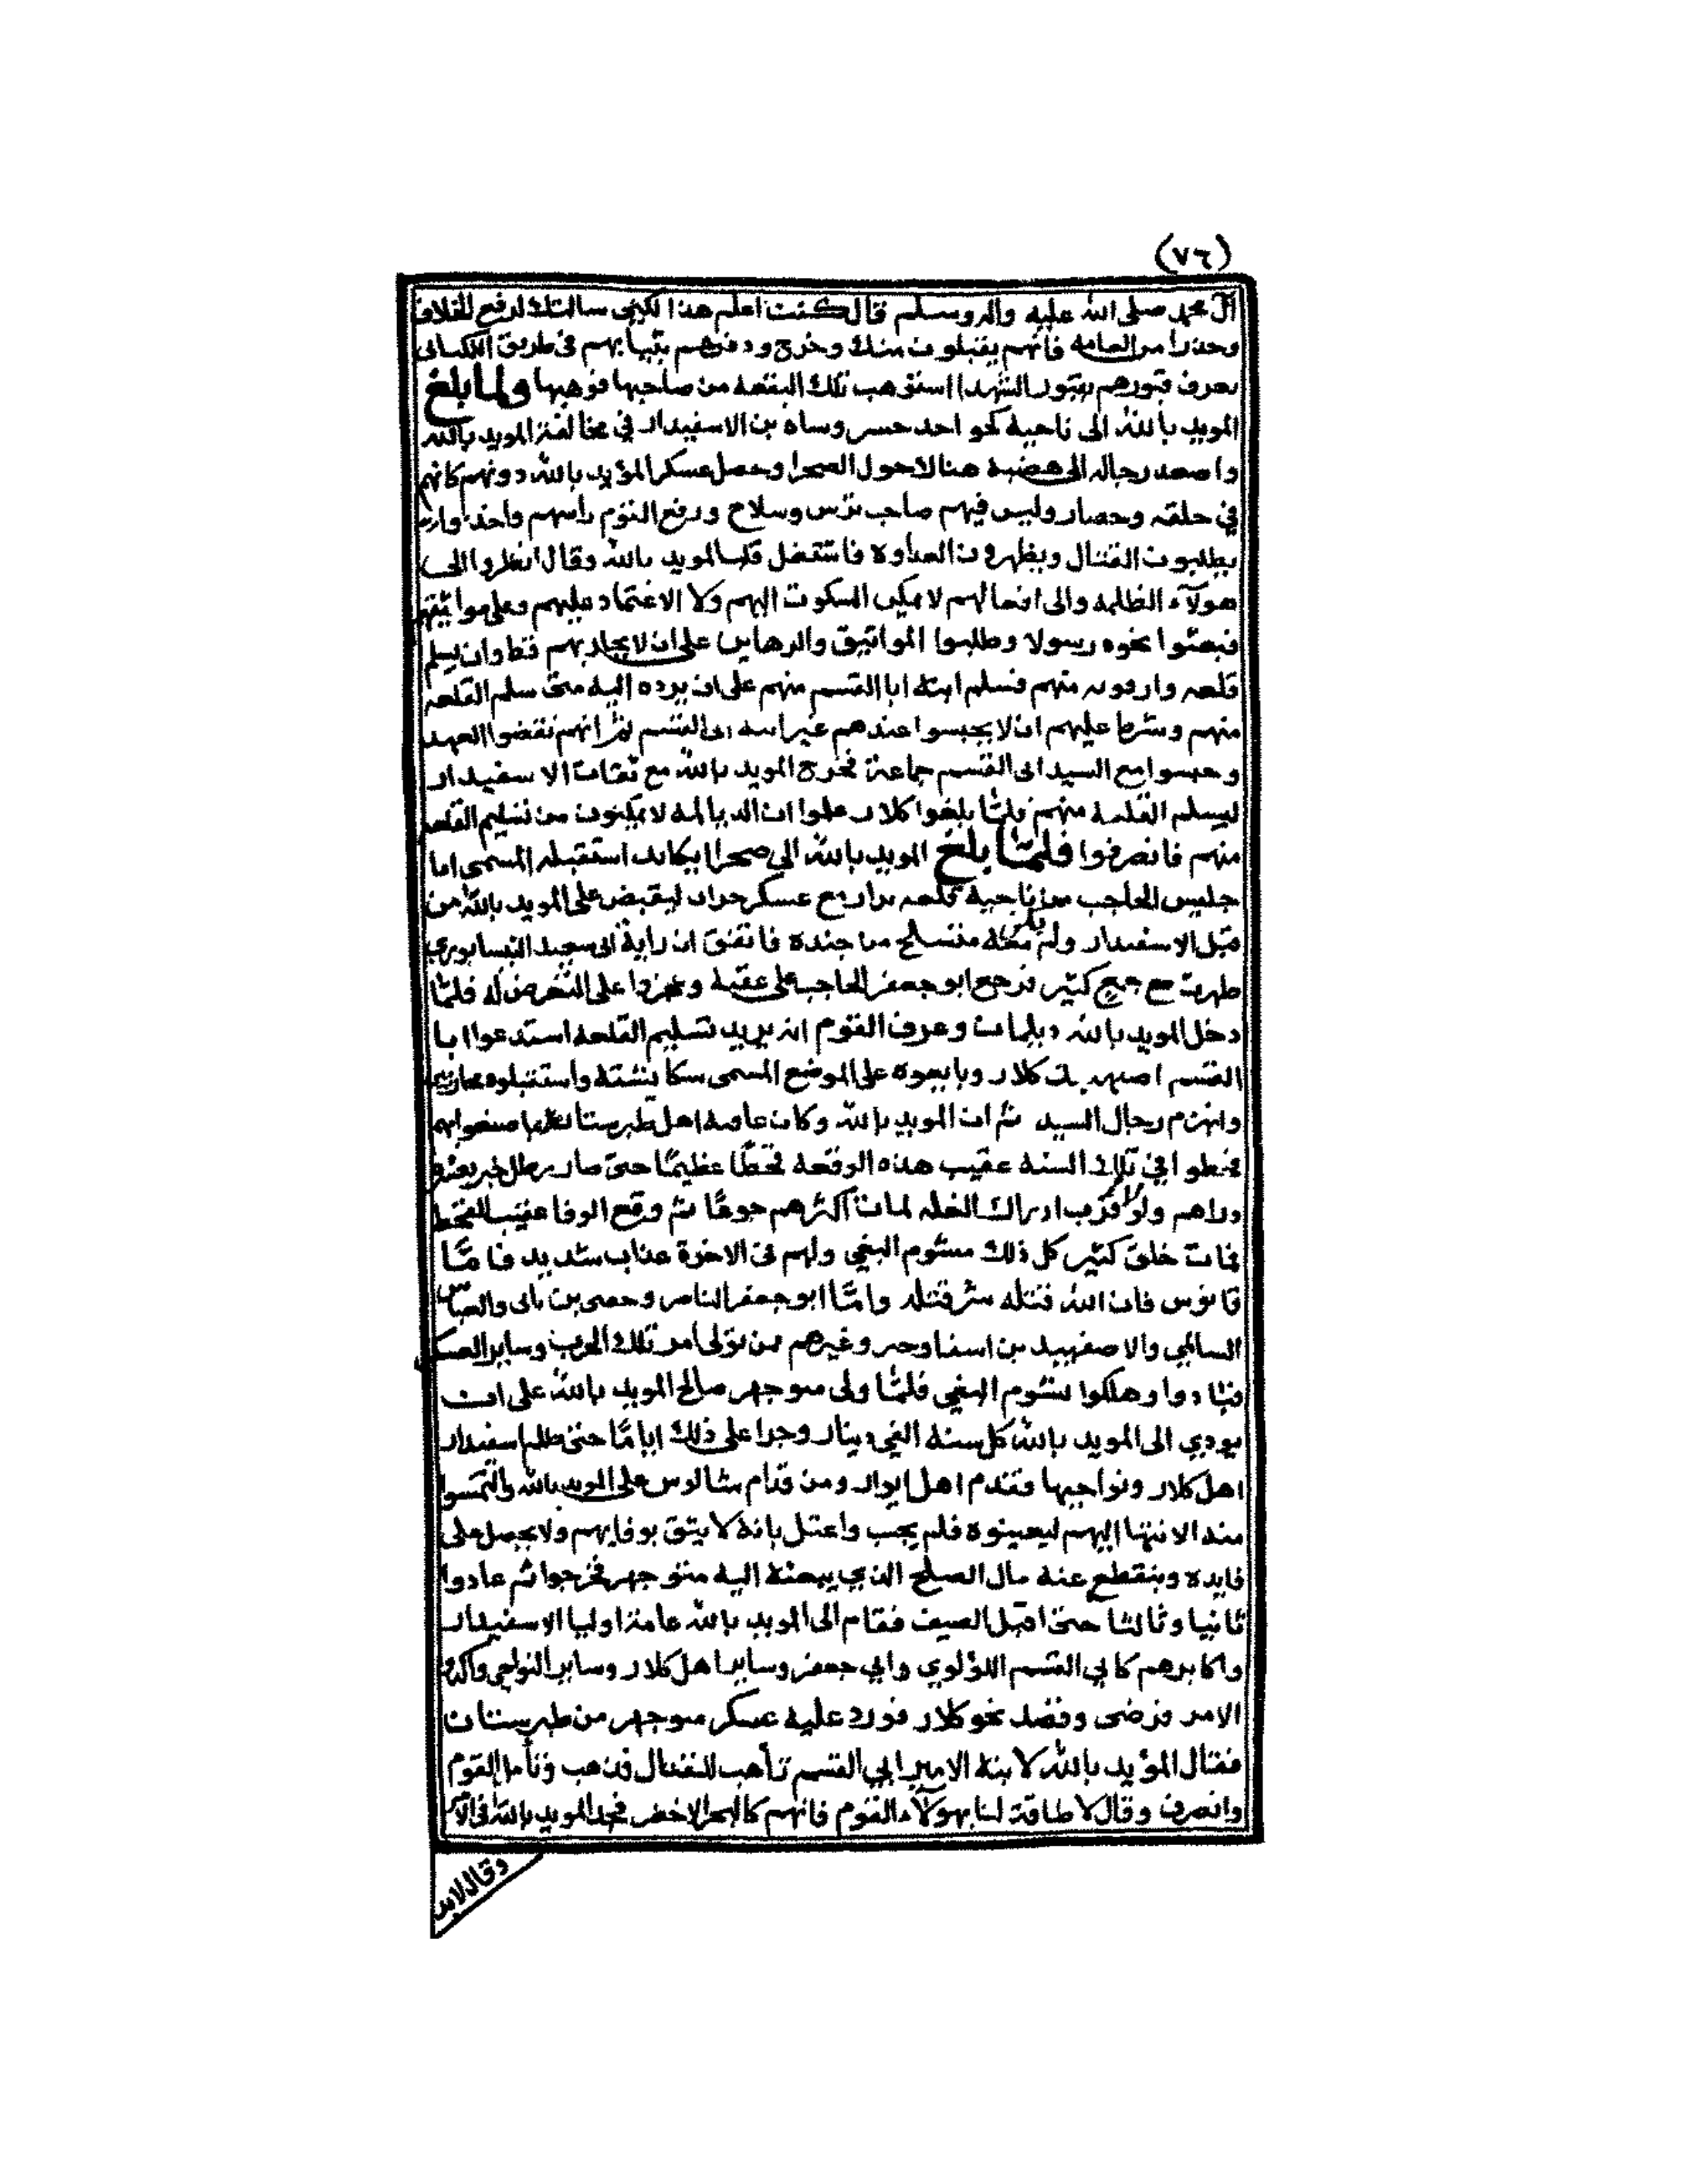 (٧٦)
آل محمد صلى الله عليه واله وسلم قال كنت اعلم هذا لكنى سالتك لرفع الخلاف
وحذرا من العامه فانهم يقبلون منك وخرج ودفنهم بثيابهم فى طريق
يعرف قبورهم بقبور الشهدا استوهب تلك البقعه من صاحبها فوهبها ولما بلغ
المويد بالله الى ناحية نحو احد بن الاسفيدار في مخالفة المويد بالله
واصعد رجاله الى هضبة هنالا حول الصحرا وحصل عسكر المؤيد بالله دونهم كانهم
في حلقه وحصار وليس فيهم صاحب ترس وسلاح ورفع القوم راسهم
يطلبون القتال ويظهرون العداوة فاشتغل قلب المويد بالله وقال انظروا الى
هولآء الظلمه والى افعالهم لا يمكن السكون اليهم ولا الاعتماد عليهم
فبعثوا نحوه رسولا وطلبوا المواثيق والرهاين على ان لا يحاربهم قط وان يسلم
قلعه منهم فسلم ابنه ابا القسم منهم على ان يرده اليه متى سلم القلعه
منهم وشرط عليهم ان لا يحبسوا عندهم غير ابنه ابى القسم ثم انهم نقضوا العهد
وحبسوا مع السيد ابى القسم جماعة فخرج المويد بالله مع ثقات الاسفيدار
ليسلم القلعة منهم فلما بلغوا كلار علموا ان الديالمه لا يمكنون من تسليم القلعه
منهم فانصرفوا فلمّا بلغ المويد بالله الى صحرا استقبله المسمى ابا
جليس الحاجب من ناحية قلعه مع عسكر جرار ليقبض على المويد بالله من
قبل الاسفيدار ولم يكن معه متسلح من جنده فاتفق ان راية ابى سعيد النيسابوري
ظهرت مع جمع كثير فرجع ابو جعفر الحاجب على عقبه على التعرض له فلمّا
دخل المويد بالله ديلمان وعرف القوم انه يريد تسليم القلعه استدعوا ابا
القسم كلار وبايعوه على الموضع المسمى واستقبلوه
وانهزم رجال السيد ثم ان المويد بالله وكان عامة اهل طبرستان
فقحطوا في تلك السنه عقيب هذه الوقعه قحطا عظيمًا حتى صار رطل خبز
دراهم ولولا قرب ادراك الغله لمات اكثرهم جوعًا ثم وقع الوفا عقيب القحط
فمات خلق كثير كل ذلك مشوم البغي ولهم فى الاخرة عذاب شديد فامّا
قابوس فان الله قتله شر قتله وامّا ابو جعفر الناصر بن بالى والعباس
السالمي والاصفهبد بن وغيرهم ممن تولى امر تلك الحرب وساير العسكر
فبادوا وهلكوا بشوم البغي فلمّا ولى منوجهر صالح المويد بالله على ان
يودي الى المويد بالله كل سنه الفي دينار وجرا على ذلك ايامًا حتى ظلم اسفيدار
اهل كلار ونواحيها فقدم اهل ومن قدام شالوس على المويد بالله والتمسوا
منه اليهم ليعينوه فلم يجب واعتل بانه لا يثق بوفايهم ولا يحصل على
فايده وينقطع عنه مال الصلح الذي يبعثه اليه منوجهر فخرجوا ثم عادوا
ثانيا وثالثا حتى اقبل الصيف فقام الى المويد بالله عامة اوليا الاسفيدار
واكابرهم كابي القسم اللؤلوي وابي جعفر وساير اهل كلار وساير النواحي
الامر فرضى وقصد نحو كلار فورد عليه عسكر منوجهر من طبرستان
فقال المؤيد بالله لابنه الامير ابي القسم تأهب للقتال فذهب وتأمل القوم
وانصرف وقال لا طاقة لنا بهولآء القوم فانهم كالبحر الاخضر المويد بالله
وقال لابد